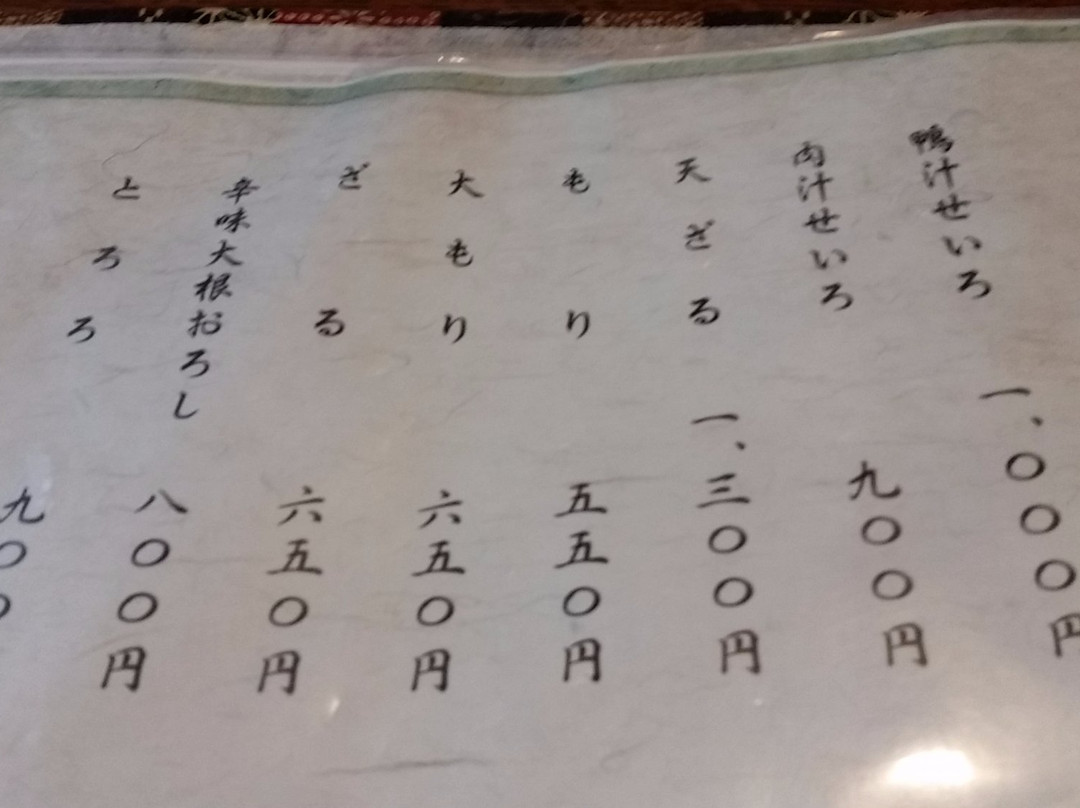 鴨汁せいろ 一、〇〇〇円
肉汁せいろ 九〇〇円
天ざる 一、三〇〇円
もり 五五〇円
大もり 六五〇円
ざる 六五〇円
辛味大根おろし 八〇〇円
とろろ 九〇〇